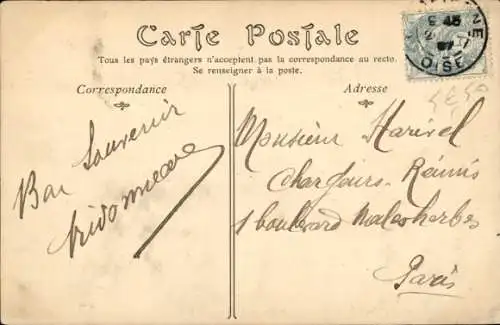 Carte Postale
Tous les pays étrangers n'acceptent pas la correspondance au recto.
Se renseigner à la poste.
Correspondance
Adresse
Bon Souvenir
Monsieur Harivel
Chargeurs-Réunis
1 boulevard Malesherbes
Paris
9 45
OISE
4€50